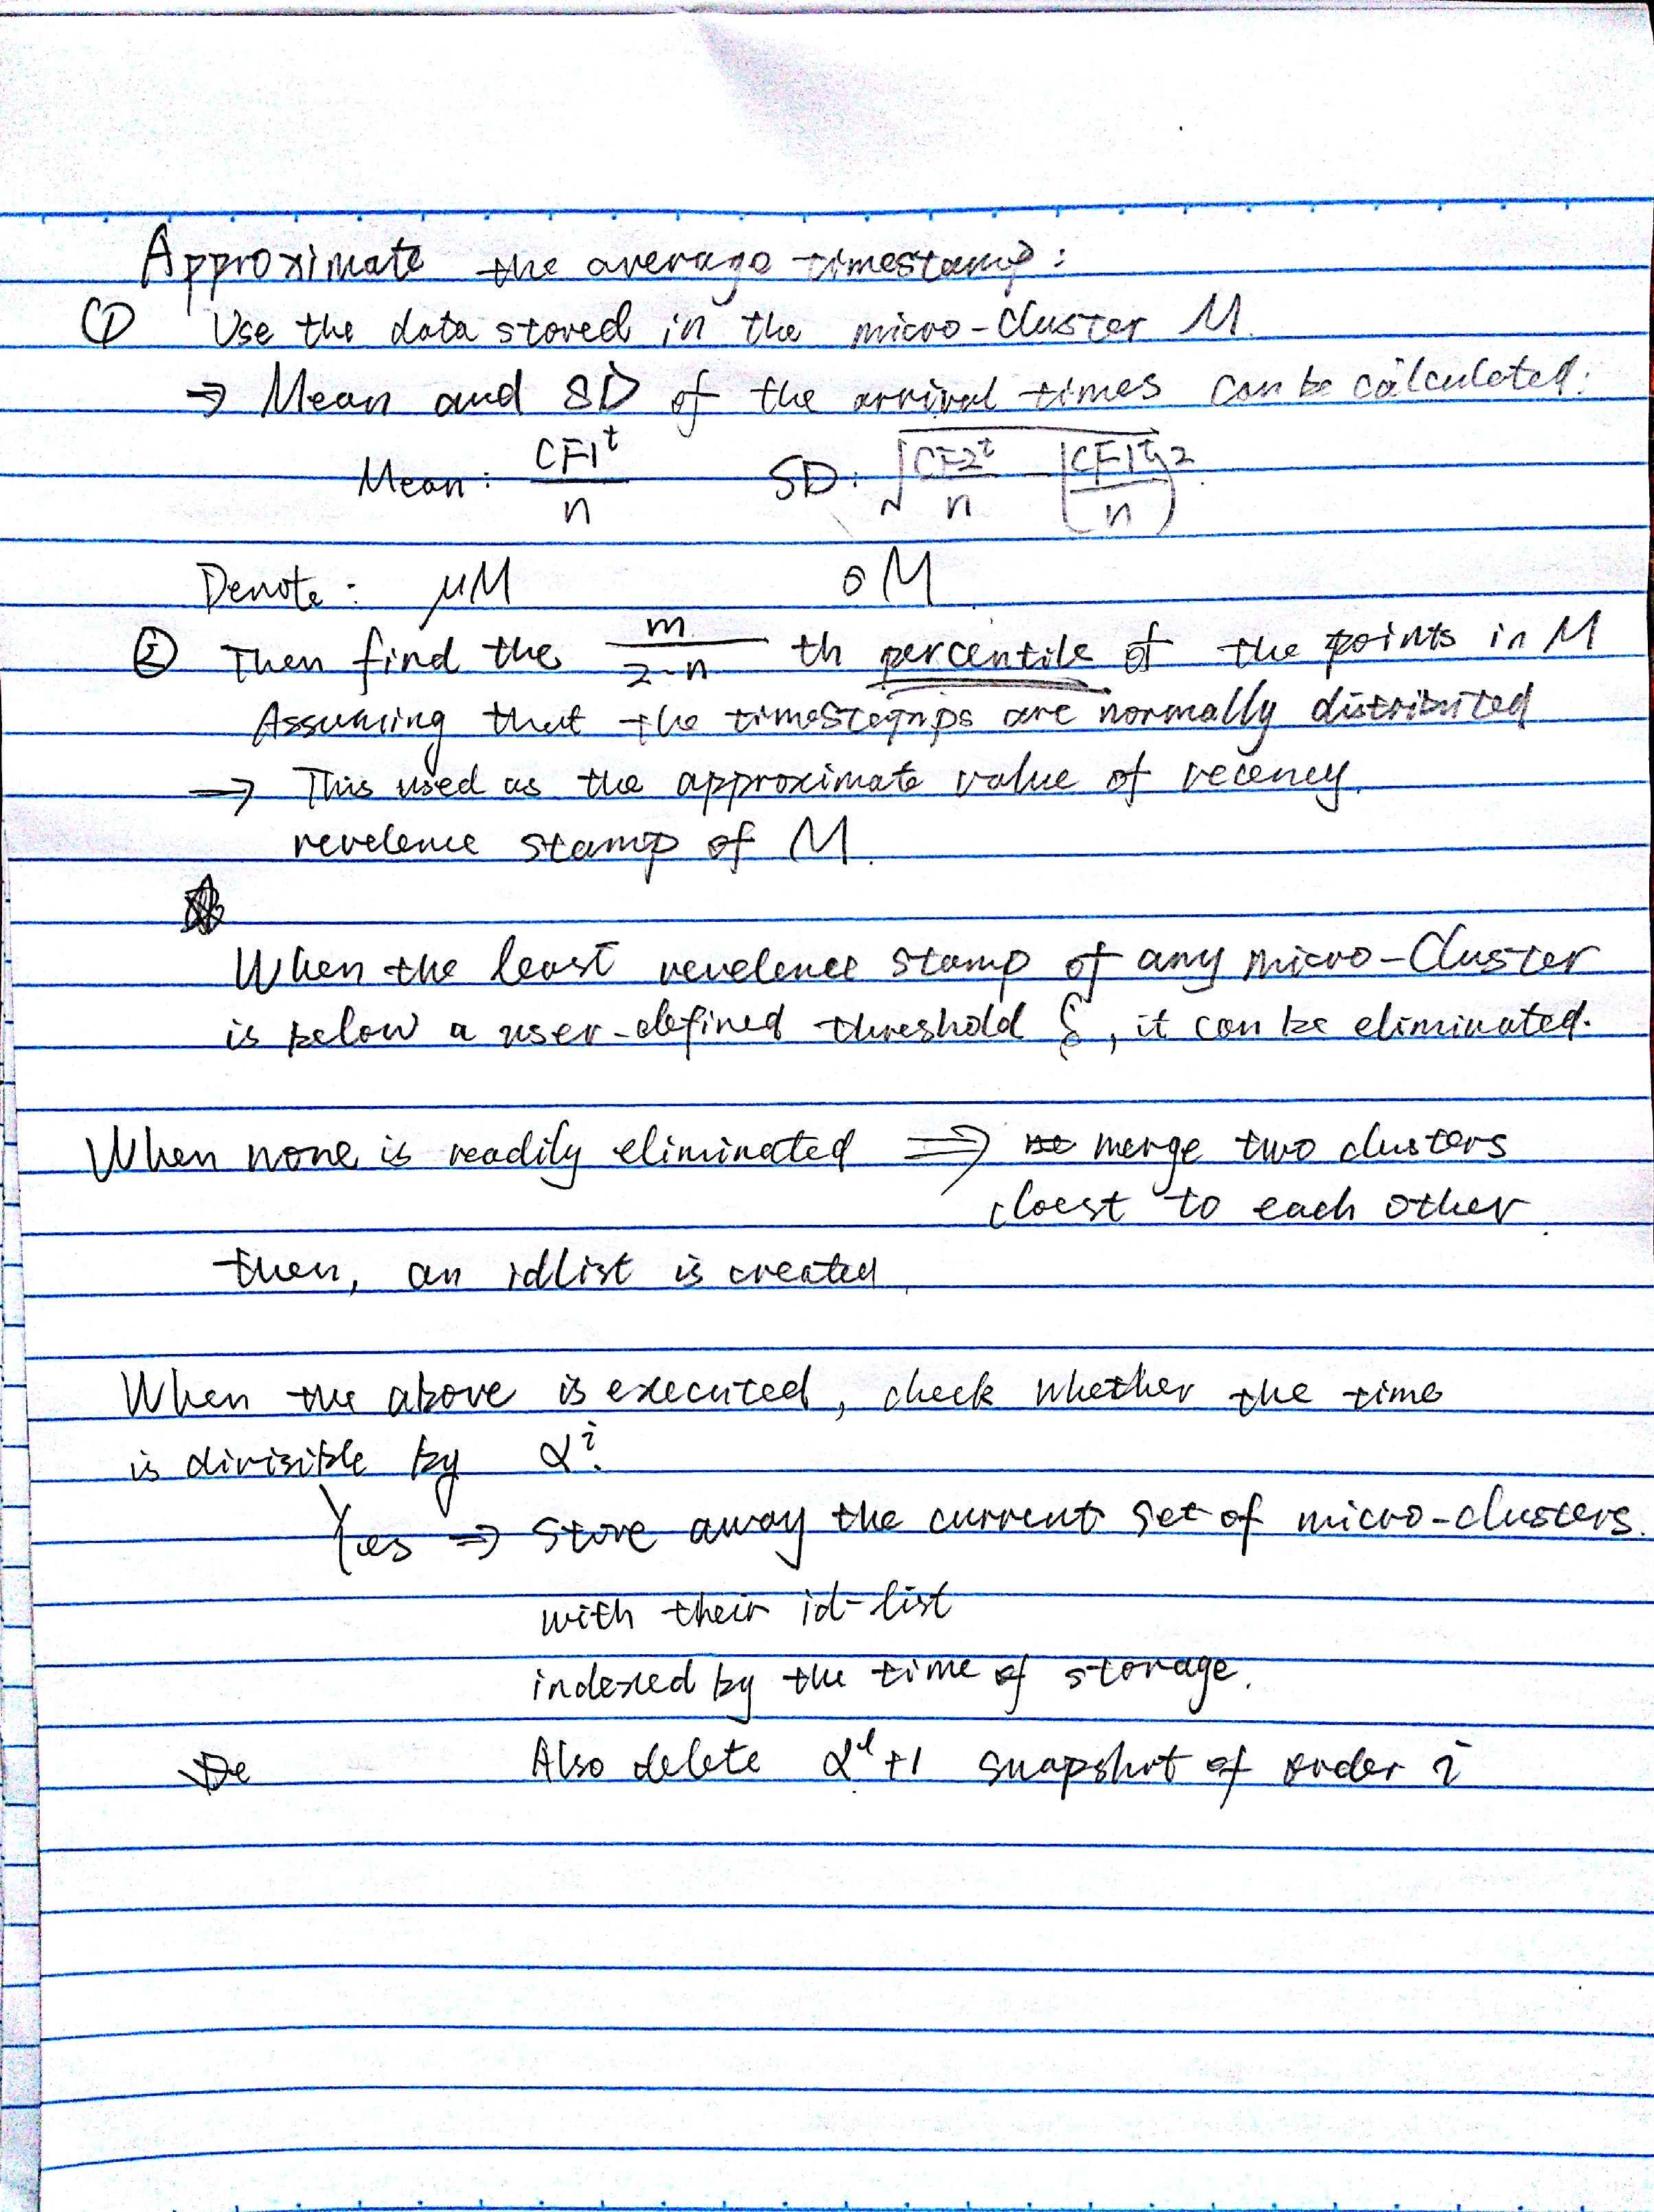 Approximate the average timestamp:
① Use the data stored in the micro-cluster M.
⇒ Mean and SD of the arrival times can be calculated:
Mean: CF1^t / n SD: √(CF2^t / n - (CF1^t / n)^2)
Denote: μM σM
② Then find the m / 2·n th percentile of the points in M
Assuming that the timestamps are normally distributed
⇒ This used as the approximate value of recency.
revelence stamp of M.
When the least revelence stamp of any micro-Cluster
is below a user-defined threshold δ, it can be eliminated.
When none is readily eliminated ⇒ merge two clusters
cloest to each other.
then, an idlist is created.
When the above is executed, check whether the time
is divisible by α^i.
Yes ⇒ Store away the current set of micro-clusters.
with their id-list
indexed by the time of storage.
De Also delete α^l+1 snapshot of order i